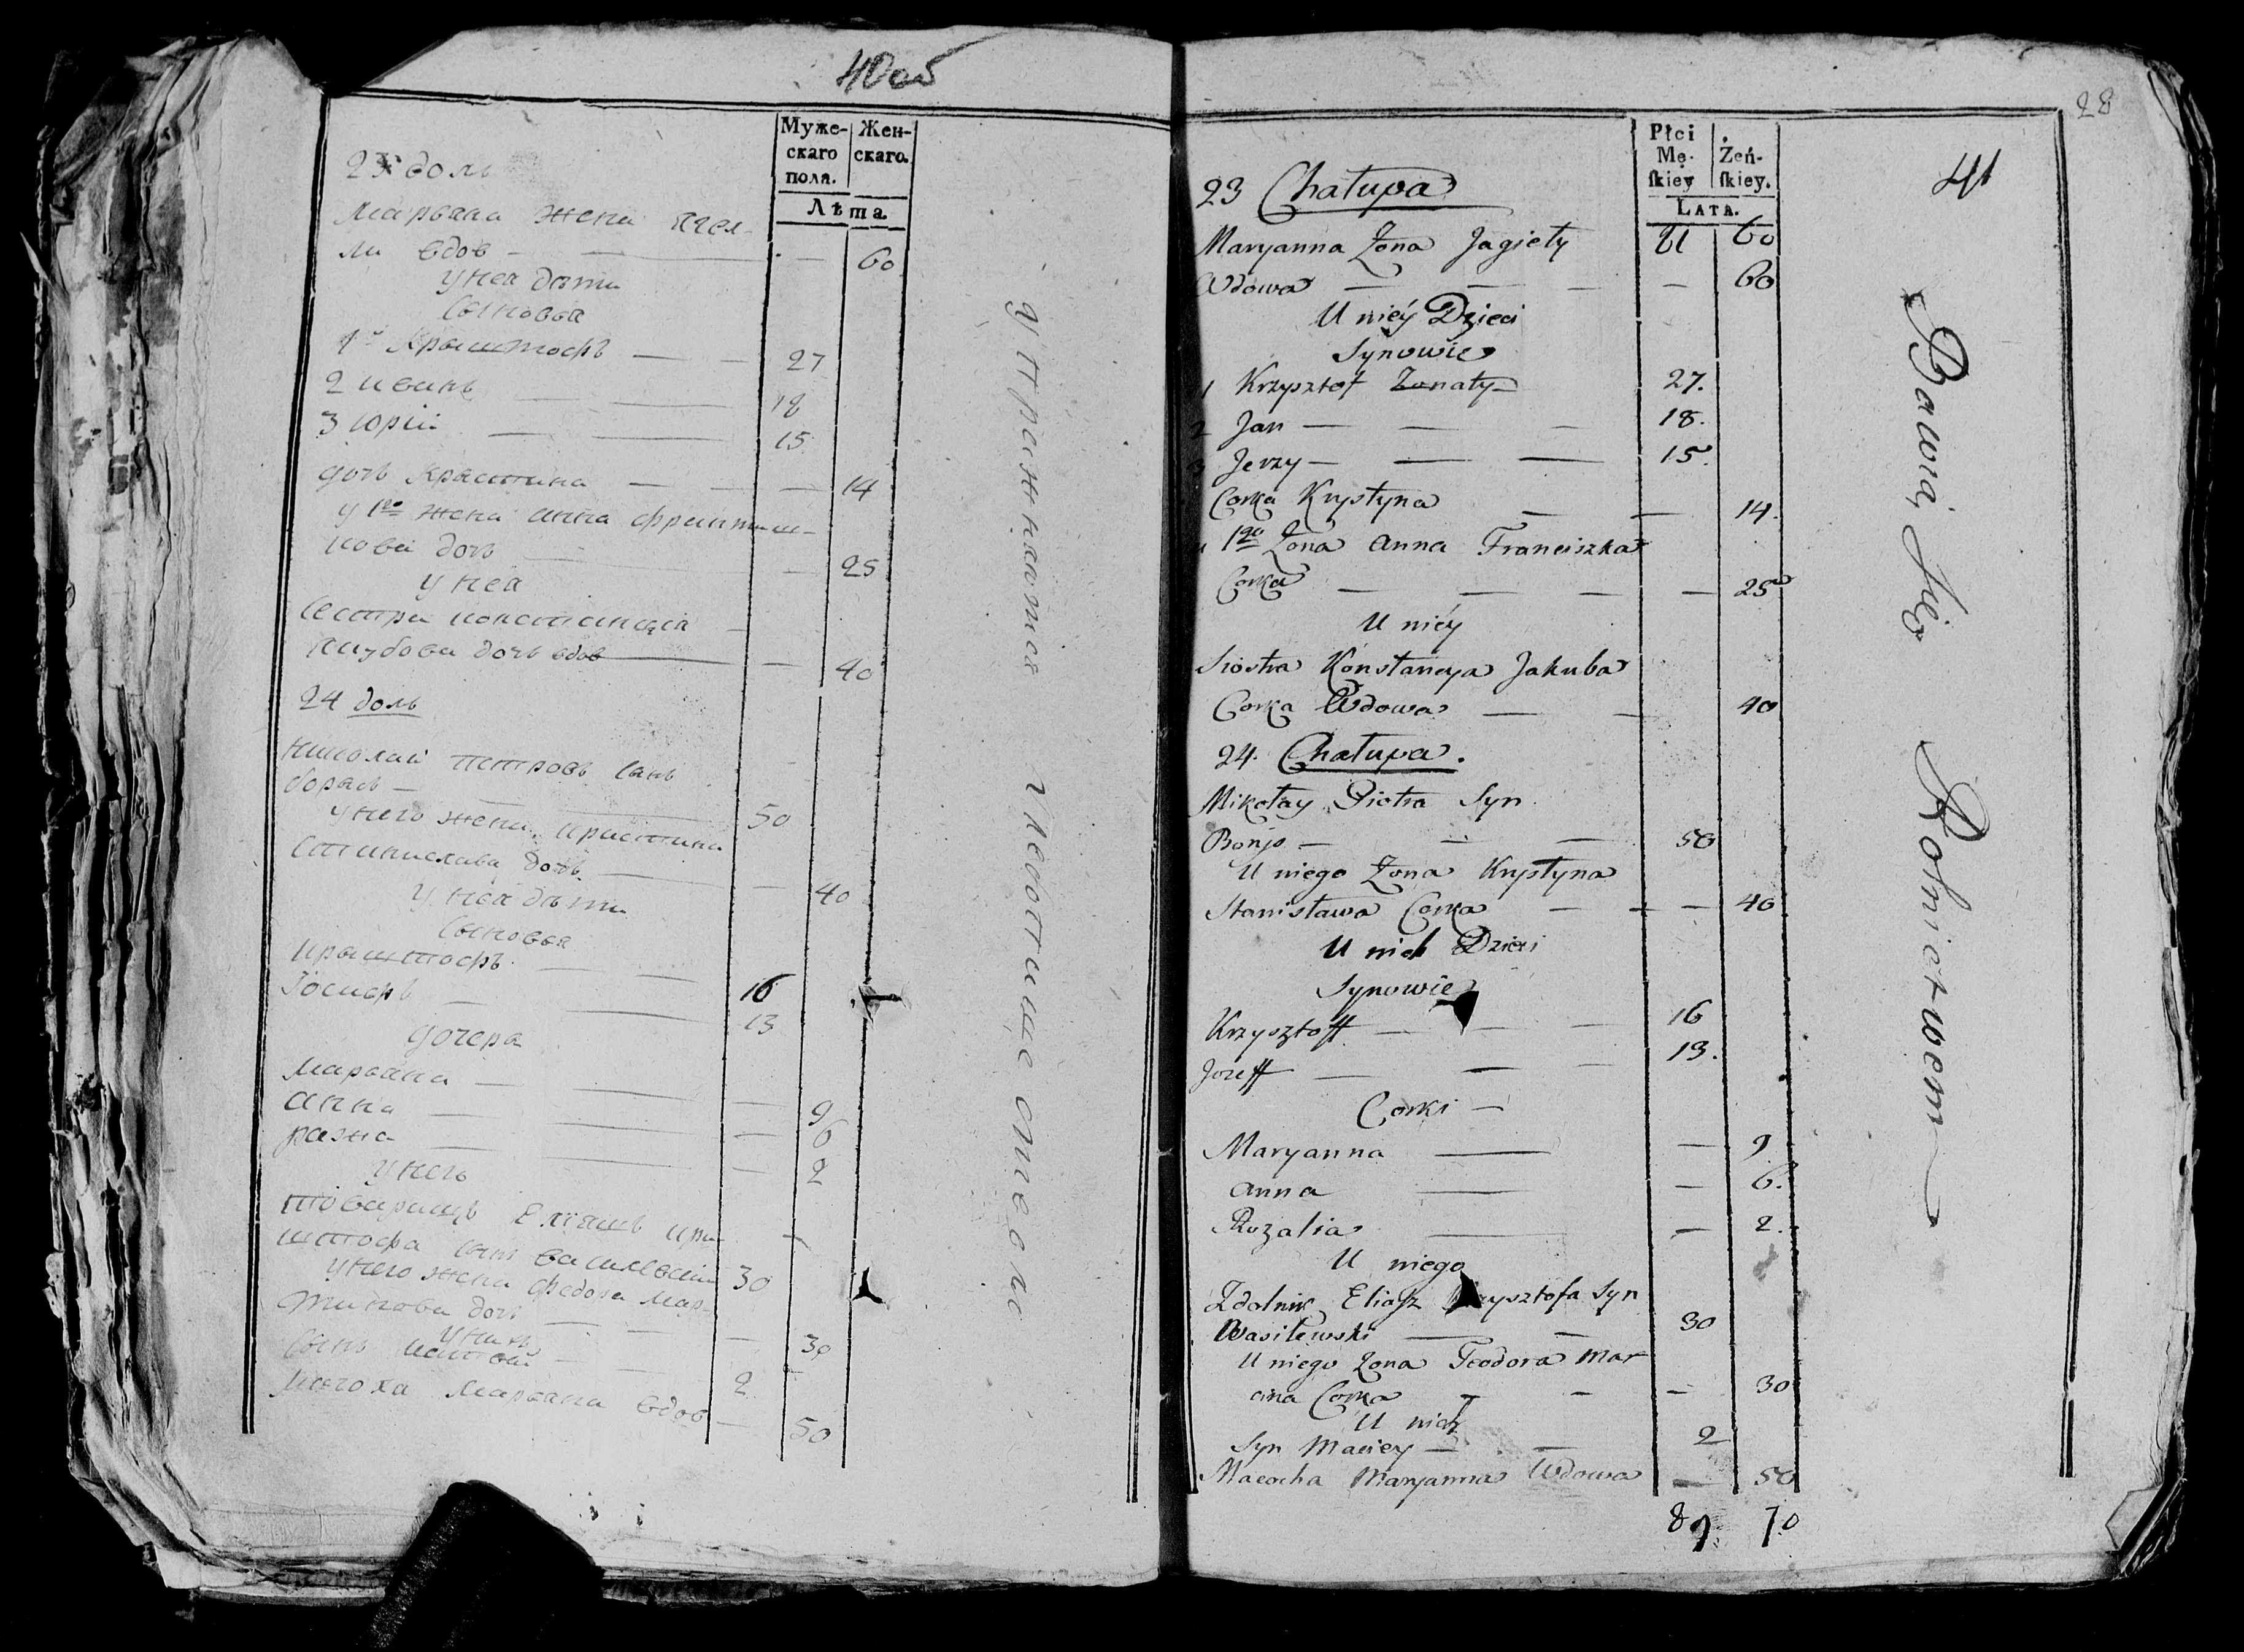 40 об
Муже-
скаго
пола.
Жен-
скаго.
Лѣта
23 домъ
Марьяна жена Ягел-
ли вдов — 60
У нея дѣти
Сыновья
1й Крыштофъ — 27
2 Иванъ — 18
3 Юрій — 15
дочь Крыстина — 14
у 1го жена Анна Францишк-
ова дочь — 25
У нея
Сестра Констанція
Якубова дочь вдов — 40
24 домъ
Николай Петровъ сынъ
— 50
У него жена Кристина
Станислава дочь — 40
У нея дѣти
Сыновья
Крыштофъ — 16
Іосифъ — 13
Дочери
Марьяна — 9
Анна — 6
— 2
У него
товарищъ Еліяшъ Кры-
штофа сынъ Василевскій 30
У него жена Федора Мар-
тинова дочь — 30
У нихъ
Сынъ Матвей — 2
Мачоха Марьяна вдов — 50
Упражняются хлебопашеством
28
41
Płci
Mę-
skiey
Żeń-
skiey.
LATA.
23 Chałupa
81 60
Maryanna Żona Jagieły
Wdowa — 60
U niéy Dzieci
Synowie
1 Krzysztof Żonaty 27.
2 Jan — 18.
3 Jerzy — 15.
Corka Krystyna — 14.
u 1go Żona Anna Franciszka
Corka — 25
U niéy
Siostra Konstancya Jakuba
Corka Wdowa — 40
24. Chałupa.
Mikołay Piotra Syn
— 50
U niego Żona Krystyna
Stanisława Corka — 40
U nich Dzieci
Synowie
Krzysztoff — 16
Jozeff — 13.
Corki —
Maryanna — 9
Anna — 6.
Rozalia — 2.
U niego
Zdolnik Eliasz Krzysztofa Syn
Wasilewski — 30
U niego Żona Teodora Mar
cina Corka — 30
U nich
Syn Maciey — 2
Macocha Maryanna Wdowa — 50
89. 70
Bawią się Rolnictwem